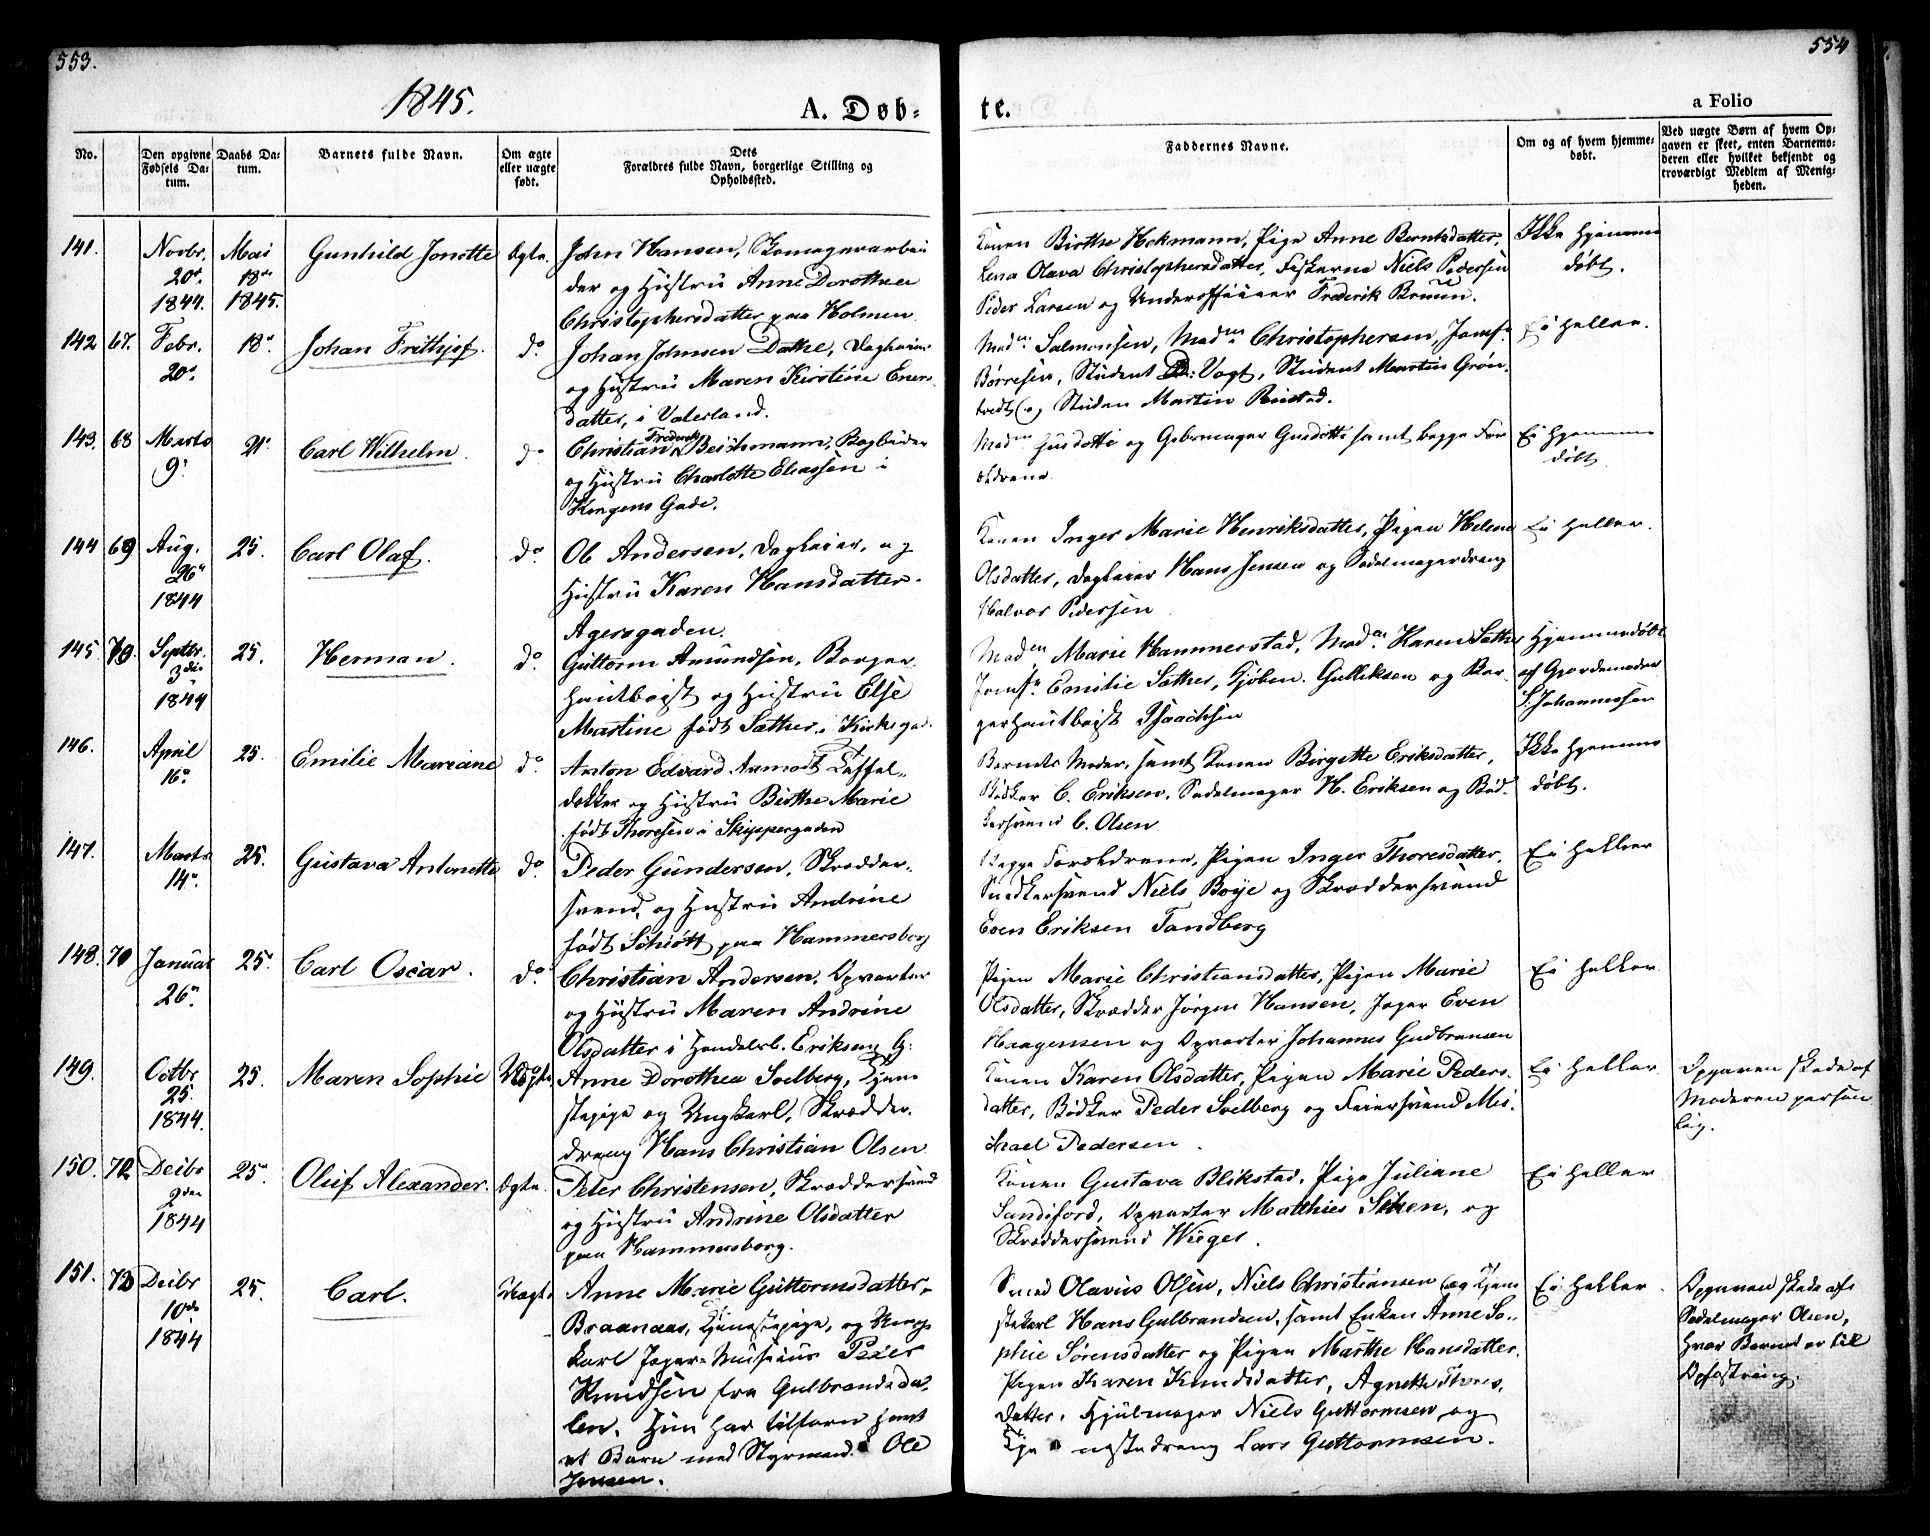 553.
554
1845.
A. Døb-
te.
a Folio
No.
Den opgivne Fødsels Da-
tum.
Daabs Da-
tum.
Barnets fulde Navn.
Om ægte
eller uægte
født.
Dets
Forældres fulde Navn, borgerlige Stilling og
Opholdssted.
Faddernes Navne.
Om og af hvem hjemme-
døbt.
Ved uægte Børn af hvem Op-
gaven er skeet, enten Barnemo-
deren eller hvilket bekjendt og
troværdigt Medlem af Menig-
heden.
141. Novbr. 20de 1844. Mai 18de 1845. Gunhild Jonette Ægte.
John Hansen, Skomagerarbei
der og Hustru Anne Dorothea
Christophersdatter paa Holmen
Konen Birthe Hekmann, Pige Anne Berntsdatter,
Lena Olava Christophersdatter, Fiskerne Niels Pedersen
Peder Larsen og Underofficeer Frederik Bruun.
Ikke hjemme
døbt.
142 67. Febr. 20de 18de Johan Frithjof. do
Johan Johnsen Dathe, Dagleier
og Hustru Maren Kirstine Ener
datter, i Vaterland.
Madm Salmonsen, Madm Christophersen, Jomf.
Børresen, Student D: Vogt, Student Martin Grøn
tvedt og Studen Martin Reistad.
Ei heller.
143. 68 Marts 9de 21de Carl Wilhelm. do
Christian Frederik Beichmann, Bogbinder
og Hustru Charlotte Eliassen i
Kongens Gade.
Madm Gusdotte og Gibsmager Gusdotte samt begge For
ældrene.
Ei hjemme
døbt.
144 69 Aug. 26de 1844 25. Carl Olaf. do
Ole Andersen, Dagleier, og
Hustru Karen Hansdatter
Agersgaden.
Konen Inger Marie Henriksdatter, Pigen Helene
Olsdatter, Dagleier Hans Jensen og Sadelmagerdreng
Halvor Pedersen
Ei heller.
145 70. Septbr. 3die 1844 25. Herman. do
Guttorm Amundsen, Borger
hautboist og Hustru Else
Martine født Sæther i Kirkegad.
Madm Marie Hammerstad, Madm Karen Sæther
Jomf. Emilie Sæther, Kjøbm. Gulliksen og Bor
gerhautboist Isaachsen
Hjemmedøbt
af Gjordemoder
S. Johannessen
146. April 16de 25. Emilie Mariane do
Anton Edvard Aamodt Taffel-
dækker og Hustru Birthe Marie
født Thoresen i Skippergaden
Barnets Moder, samt Konen Birgitte Eriksdatter,
Bødker C. Eriksen, Sadelmager H. Eriksen og Bød
kersvend C. Olsen
Ikke hjemme
døbt.
147. Marts 14de 25. Gustava Antonette do
Peder Gundersen, Skrædder-
svend, og Hustru Andrine
født Schiøtt paa Hammersborg
Begge Forældrene, Pigen Inger Thoresdatter,
Snedkersvend Niels Boye og Skræddersvend
Even Eriksen Tandberg
Ei heller
148. 70 Januar 26de 25. Carl Oscar. do
Christian Andersen, Opvarter
og Hustru Maren Andrine
Olsdatter i Handelsb. Eriksens G:
Pigen Marie Christiansdatter, Pigen Marie
Olsdatter, Skrædder Jørgen Hansen, Jæger Even
Haagensen og Opvarter Johannes Gudbransen
Ei heller.
149. Octbr 25. 1844. 25. Maren Sophie Uægte
Anne Dorothea Solberg, Tjene
stepige og Ungkarl, Skrædder
dreng Hans Christian Olsen
Konen Karen Olsdatter, Pigen Marie Peders
datter, Bødker Peder Solberg og Feiersvend Mi
chael Pedersen.
Ei heller.
Opgaven skede af
Moderen person
lig.
150. 72 Decbr 2den 1844 25de Oluf Alexander. Ægte.
Peter Christensen, Skræddersvend
og Hustru Andrine Olsdatter
paa Hammersborg.
Konen Gustava Blikstad, Pige Juliane
Sandiford, Opvarter Matthies Schen, og
Skræddersvend Wieger.
Ei heller
151. 73 Decbr 10de 1844 25. Carl. Uægte
Anne Marie Guttormsdatter
Braanaas, Tjenestepige, og Ung
karl Jæger-Musicus Peder
Knudsen fra Gulbrandsda
len. Hun har tilforn havt
et Barn med Styrmand Ole
Jensen.
Smed Olavus Olsen, Niels Christiansen og Tjene
stekarl Hans Gulbrandsen, samt Enken Anne So-
phie Sørensdatter og Pigen Marthe Hansdatter.
Pigen Karen Knudsdatter, Agnette Thors
datter, Hjulmager Niels Guttormsen og
Tje nestedreng Lars Guttormsen.
Ei heller.
Opgaven skede af
Sadelmager Olsen,
hvor Barnet er til
Opfostring.